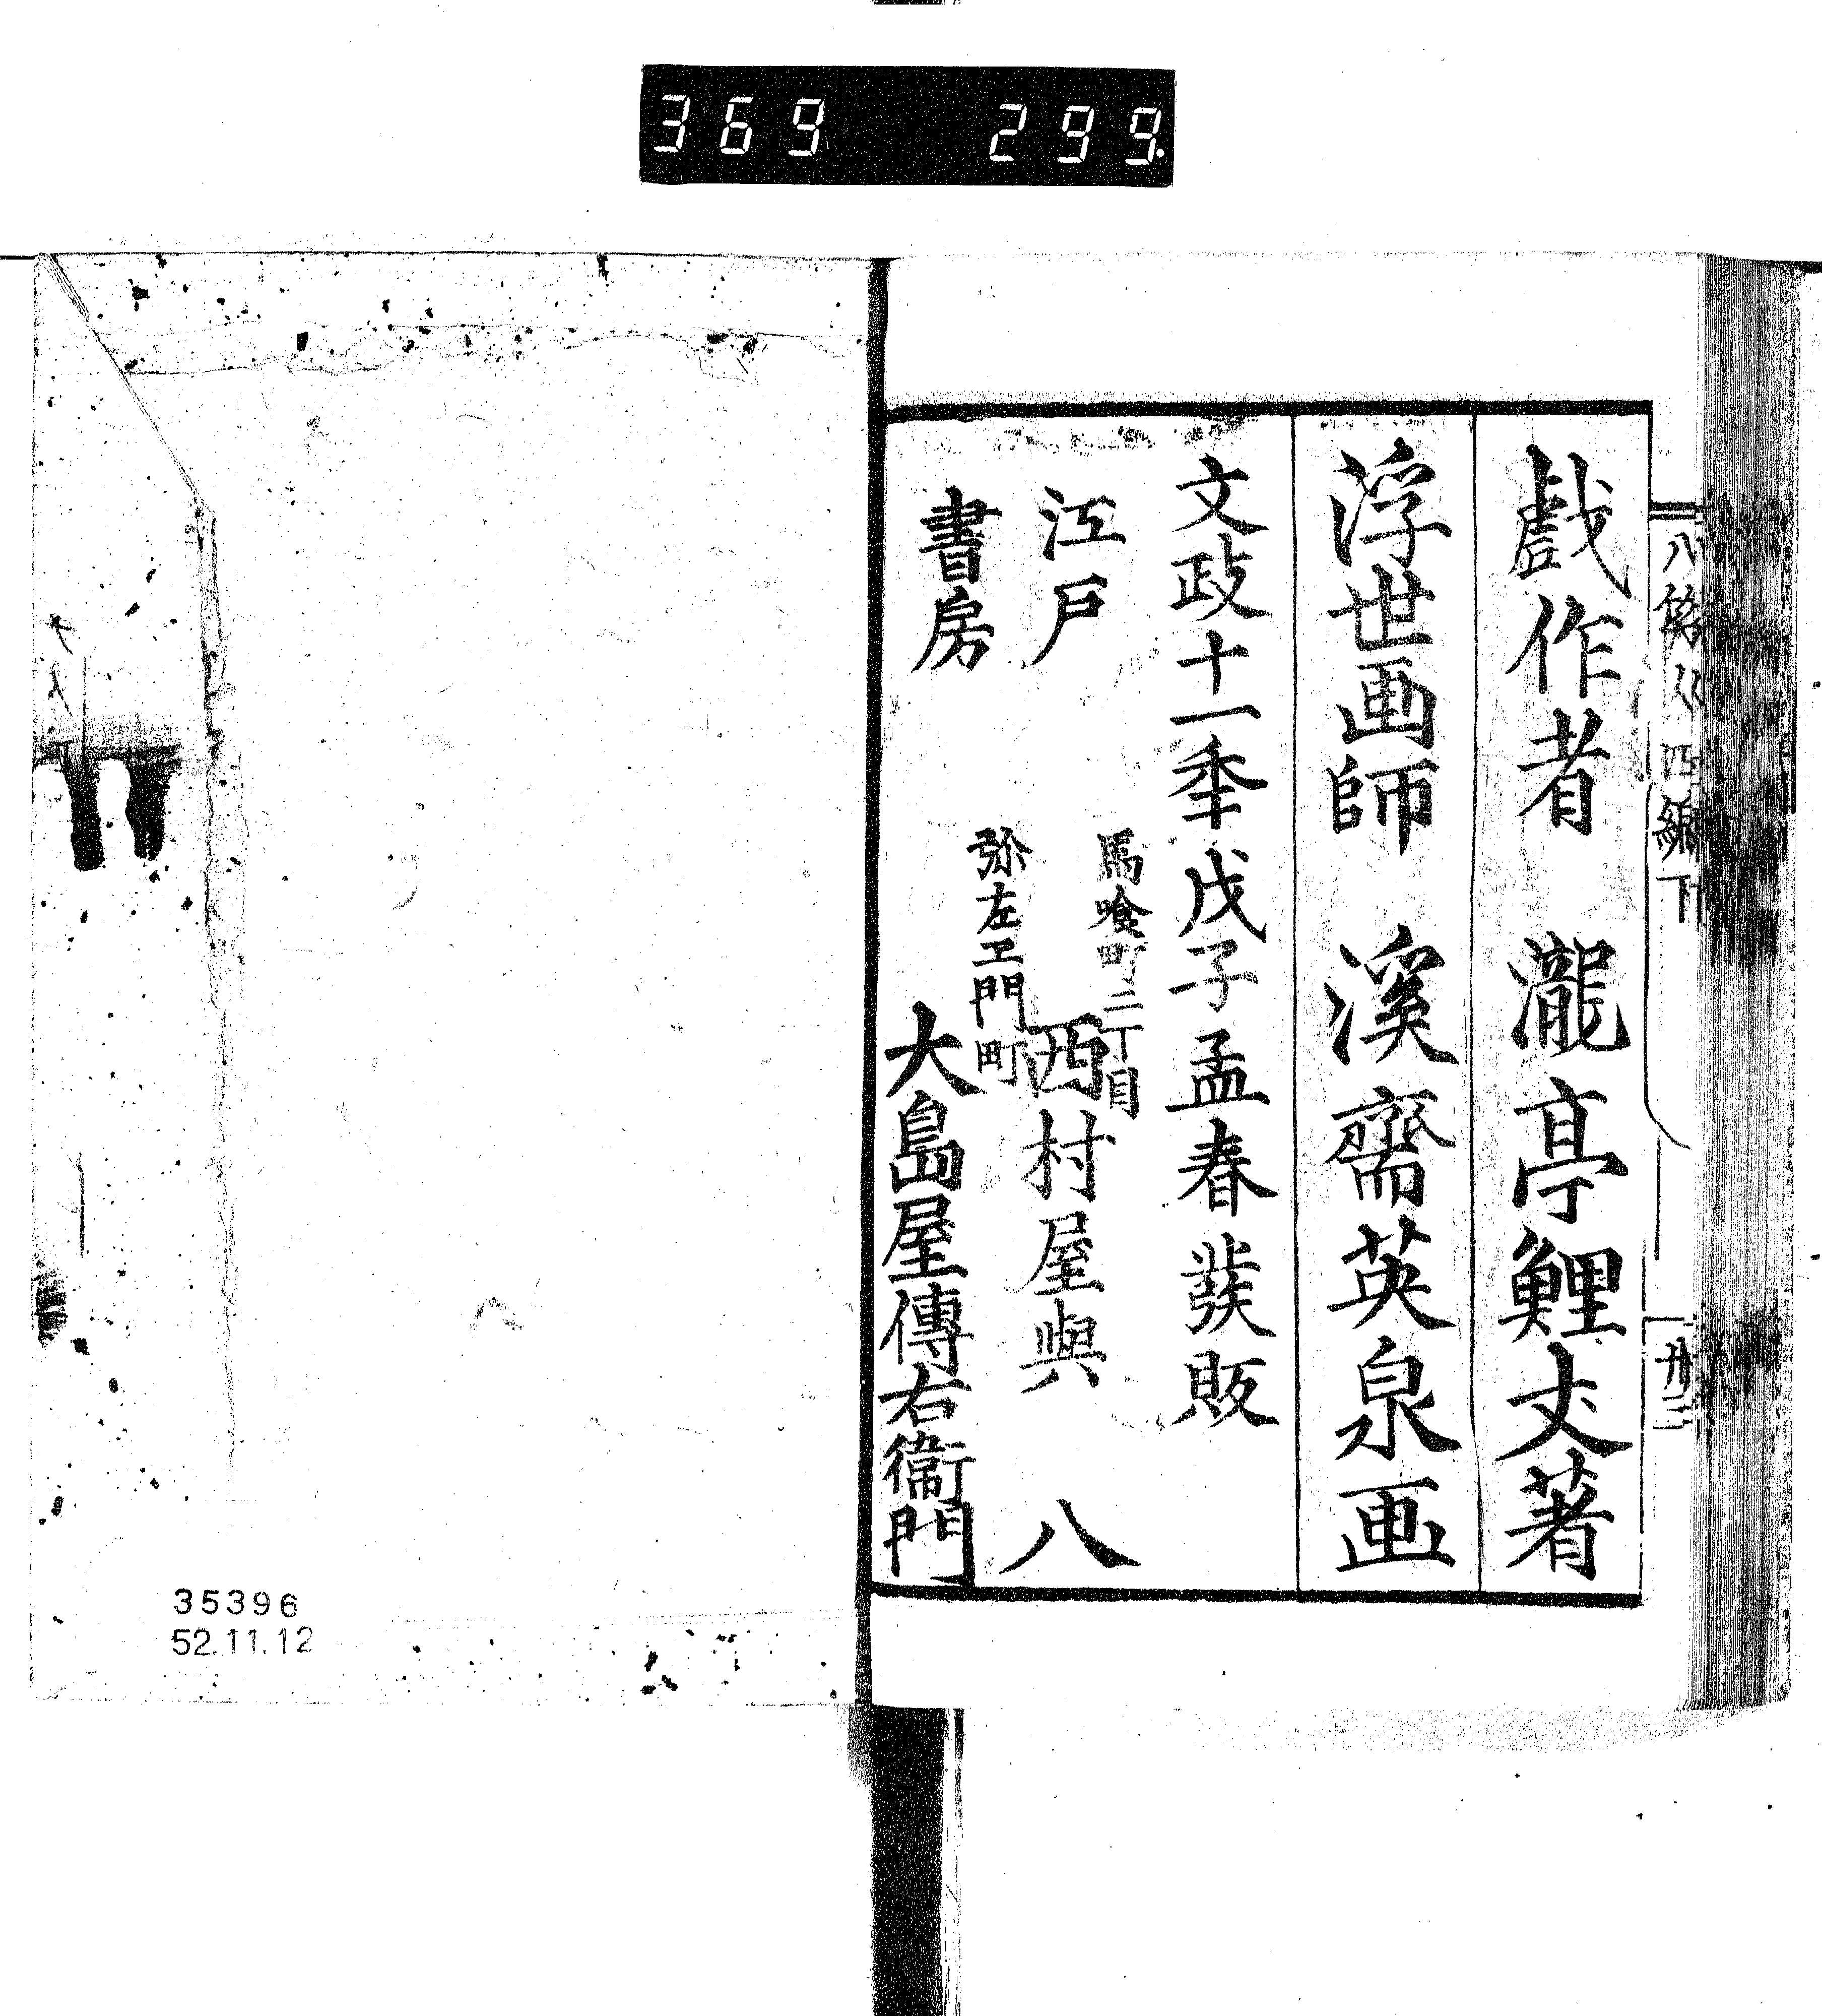 369 299.
八笑人 四編下
廿三
戯作者 瀧亭鯉丈著
浮世画師 溪齋英泉画
文政十一秊戊子孟春發販
江戸
書房
馬喰町二丁目
西村屋與八
弥左エ門町
大島屋傳右衞門
35396
52.11.12